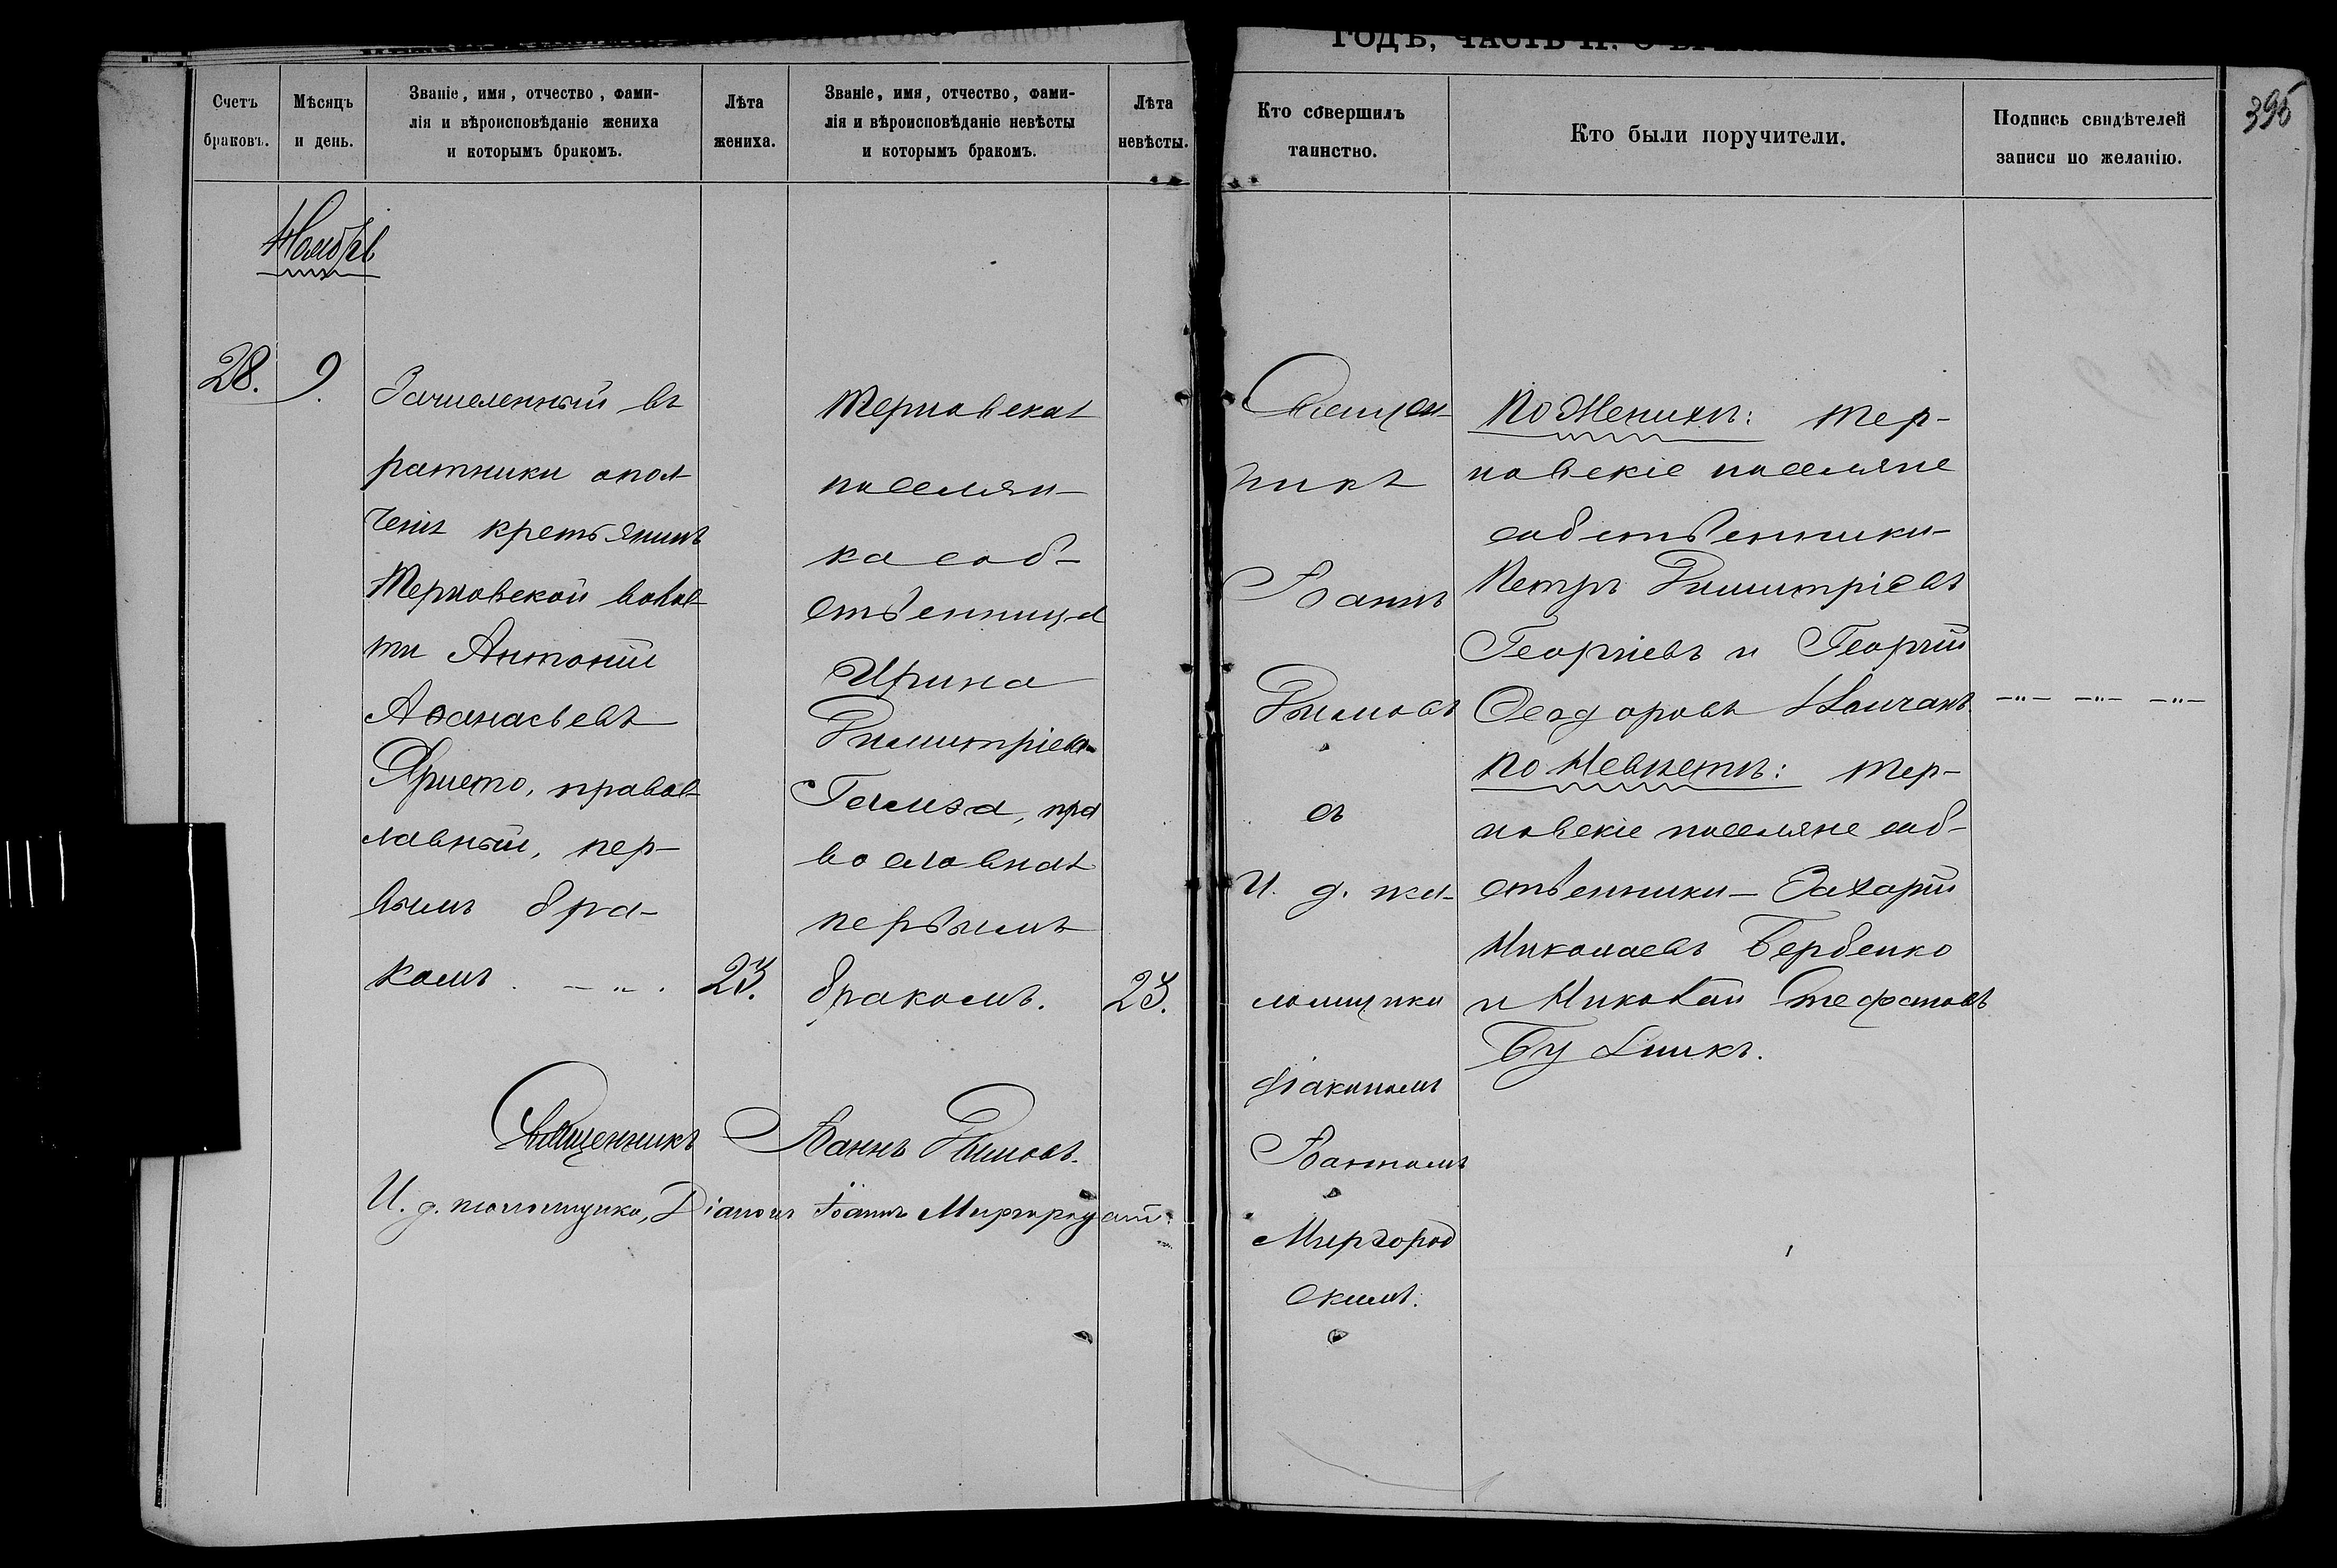 ГОДЪ, ЧАСТЬ II.
395
Счетъ браковъ.
Мѣсяцъ и день.
Званіе, имя, отчество, фами-
лія и вѣроисповѣданіе жениха
и которымъ бракомъ.
Лѣта жениха.
Званіе, имя, отчество, фами-
лія и вѣроисповѣданіе невѣсты
и которымъ бракомъ.
Лѣта невѣсты.
Кто совершилъ
таинство.
Кто были поручители.
Подпись свидѣтелей
записи по желанію.
Ноябрь
28.
9.
Зачисленный въ
ратники опол
ченія крестьянинъ
Терновской волос
ти Антоній
Аѳанасьевъ
Христо, правос
лавный, пер-
вымъ бра-
комъ
23.
Терновская
поселян-
ка соб-
ственница
Ирина
Димитріева
пра
вославная
первымъ
бракомъ.
23.
Священ
никъ
Іоаннъ
Димовъ
съ
И. д. пса-
ломщика
діакономъ
Іоанномъ
Миргород
скимъ.
По Женихѣ: Тер-
новскіе поселяне
собственники-
Петръ Димитріевъ
Георгіевъ и Георгій
Ѳеодоровъ
По Невѣстѣ: Тер-
новскіе поселяне соб-
ственники- Захарій
Николаевъ Бербенко
и Николай Стефановъ
Священникъ Іоаннъ Димовъ.
И. д. псаломщика, Діаконъ Іоаннъ Миргородскій.